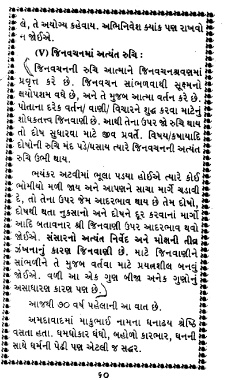 લે, તે અયોગ્ય કહેવાય. અભિનિવેશ ક્યાંક પણ રાખવો
ન જોઈએ.
(V) જિનવચનમાં અત્યંત રુચિ :
જિનવચનની રુચિ આત્માને જિનવચનશ્રવણમાં
પ્રવૃત્ત કરે છે. જિનવચન સાંભળવાથી સૂક્ષ્મનો
ક્ષયોપશમ વધે છે, અને તે મુજબ આત્મા વર્તન કરે છે.
પોતાના દરેક વર્તન/ વાણી/ વિચારને શુદ્ધ કરવા માટેનું
શોધકતત્ત્વ જિનવાણી છે. આથી તેના ઉપર જો રુચિ થાય
તો દોષ સુધારવા માટે જીવ પ્રવર્તે. વિષય/કષાયાદિ
દોષોની રુચિ મંદ પડે/ઘસાય ત્યારે જિનવચનની અત્યંત
રુચિ ઉભી થાય.
ભયંકર અટવીમાં ભૂલા પડયા હોઈએ ત્યારે કોઈ
ભોમીયો મળી જાય અને આપણને સાચા માર્ગે ચડાવી
દે, તો તેના ઉપર જેમ આદરભાવ થાય છે તેમ દોષો,
દોષથી થતા નુકસાનો અને દોષને દૂર કરવાનાં માર્ગો
આદિ બતાવનાર શ્રી જિનવાણી ઉપર આદરભાવ થવો
જોઈએ. સંસારનો અત્યંત નિર્વેદ અને મોક્ષની તીવ્ર
ઝંખનાનું કારણ જિનવાણી છે. માટે જિનવાણીને
સાંભળીને તે મુજબ વર્તવા માટે પ્રયત્નશીલ બનવું
જોઈએ. વળી આ એક ગુણ બીજા અનેક ગુણોનું
અસાધારણ કારણ પણ છે.
આજથી ૭૦ વર્ષ પહેલાની આ વાત છે.
અમદાવાદમાં માકુભાઈ નામના ધનાઢય શ્રેષ્ઠિ
વસતા હતા. ધમધોકાર ધંધો, બહોળો કારભાર, ધનની
સાથે ધર્મની પેઢી પણ એટલી જ સદ્ધર.
૬૦